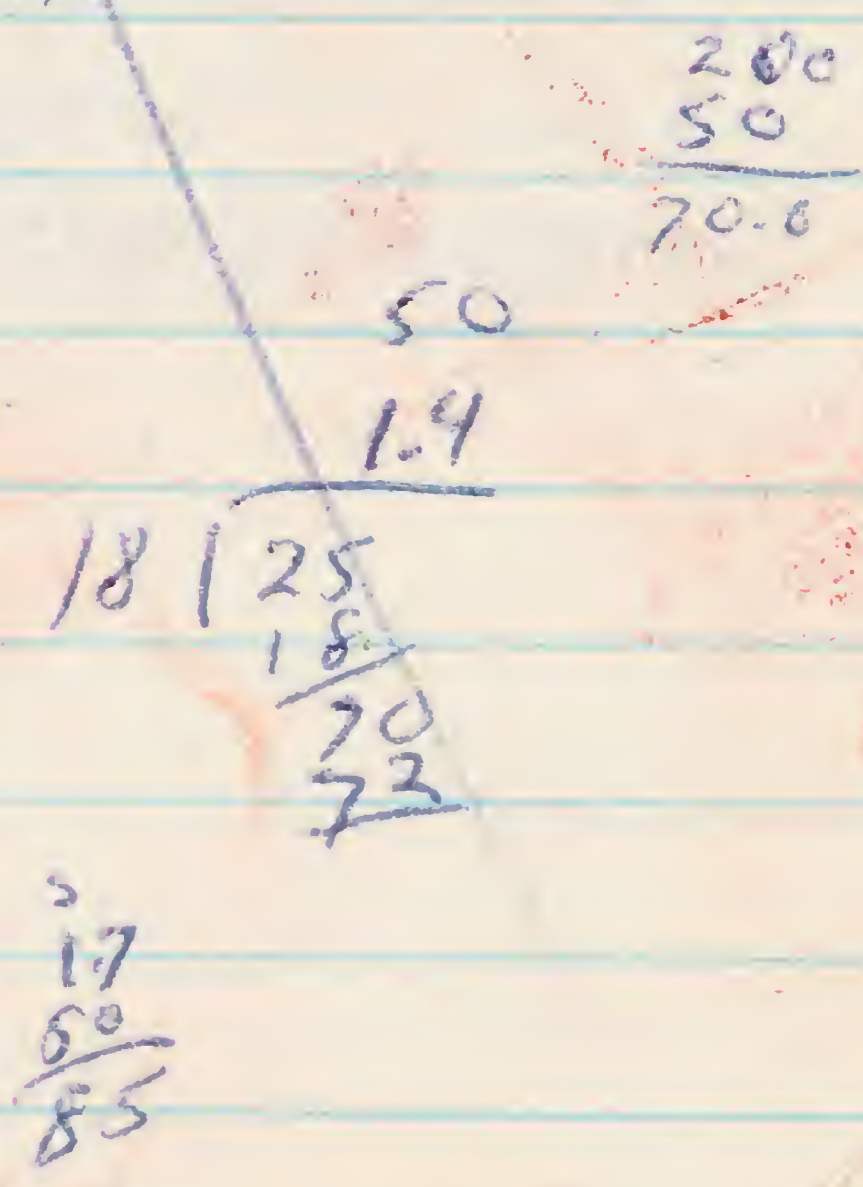 200
50
70.0
50
1.4
18 25
18
70
72
5
1.7
60
85